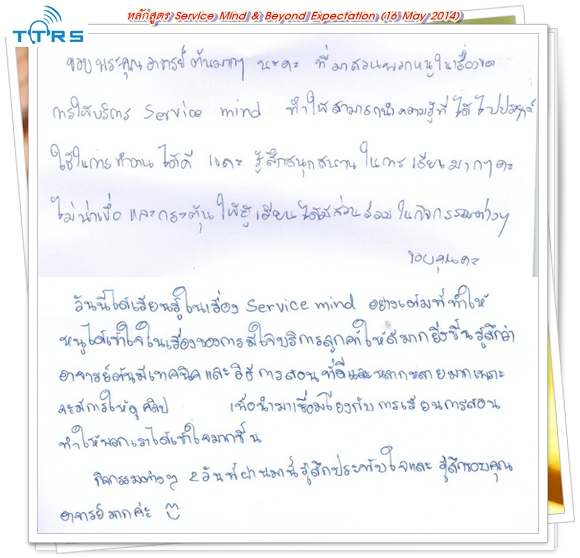 หลักสูตร Service Mind & Beyond Expectation (16 May 2014)
TTRS
ขอบพระคุณอาจารย์ต้นมากๆ นะคะ ที่มาสอนพวกหนูในเรื่องของ
การให้บริการ Service mind ทำให้สามารถนำความรู้ที่ได้ไปประยุกต์
ใช้ในการทำงานได้ดี และรู้สึกสนุกสนานในการเรียนมากๆคะ
ไม่น่าเบื่อ และกระตุ้นให้ผู้เรียนได้มีส่วนร่วมในกิจกรรมต่างๆ
ขอบคุณคะ
วันนี้ได้เรียนรู้ในเรื่อง Service mind อย่างเต็มที่ทำให้
หนูได้เข้าใจในเรื่องของการมีใจบริการลูกค้าให้ดีมากยิ่งขึ้น รู้สึกว่า
อาจารย์ต้นมีเทคนิคและวิธีการสอนที่ดีและหลากหลายมากเพราะ
จะมีการให้ดูคลิป เพื่อนำมาเชื่อมโยงกับการเรียนการสอน
ทำให้พวกเราได้เข้าใจมากขึ้น
กิจกรรมต่างๆ 2 วันที่ผ่านมานี้รู้สึกประทับใจและรู้สึกขอบคุณ
อาจารย์มากค่ะ